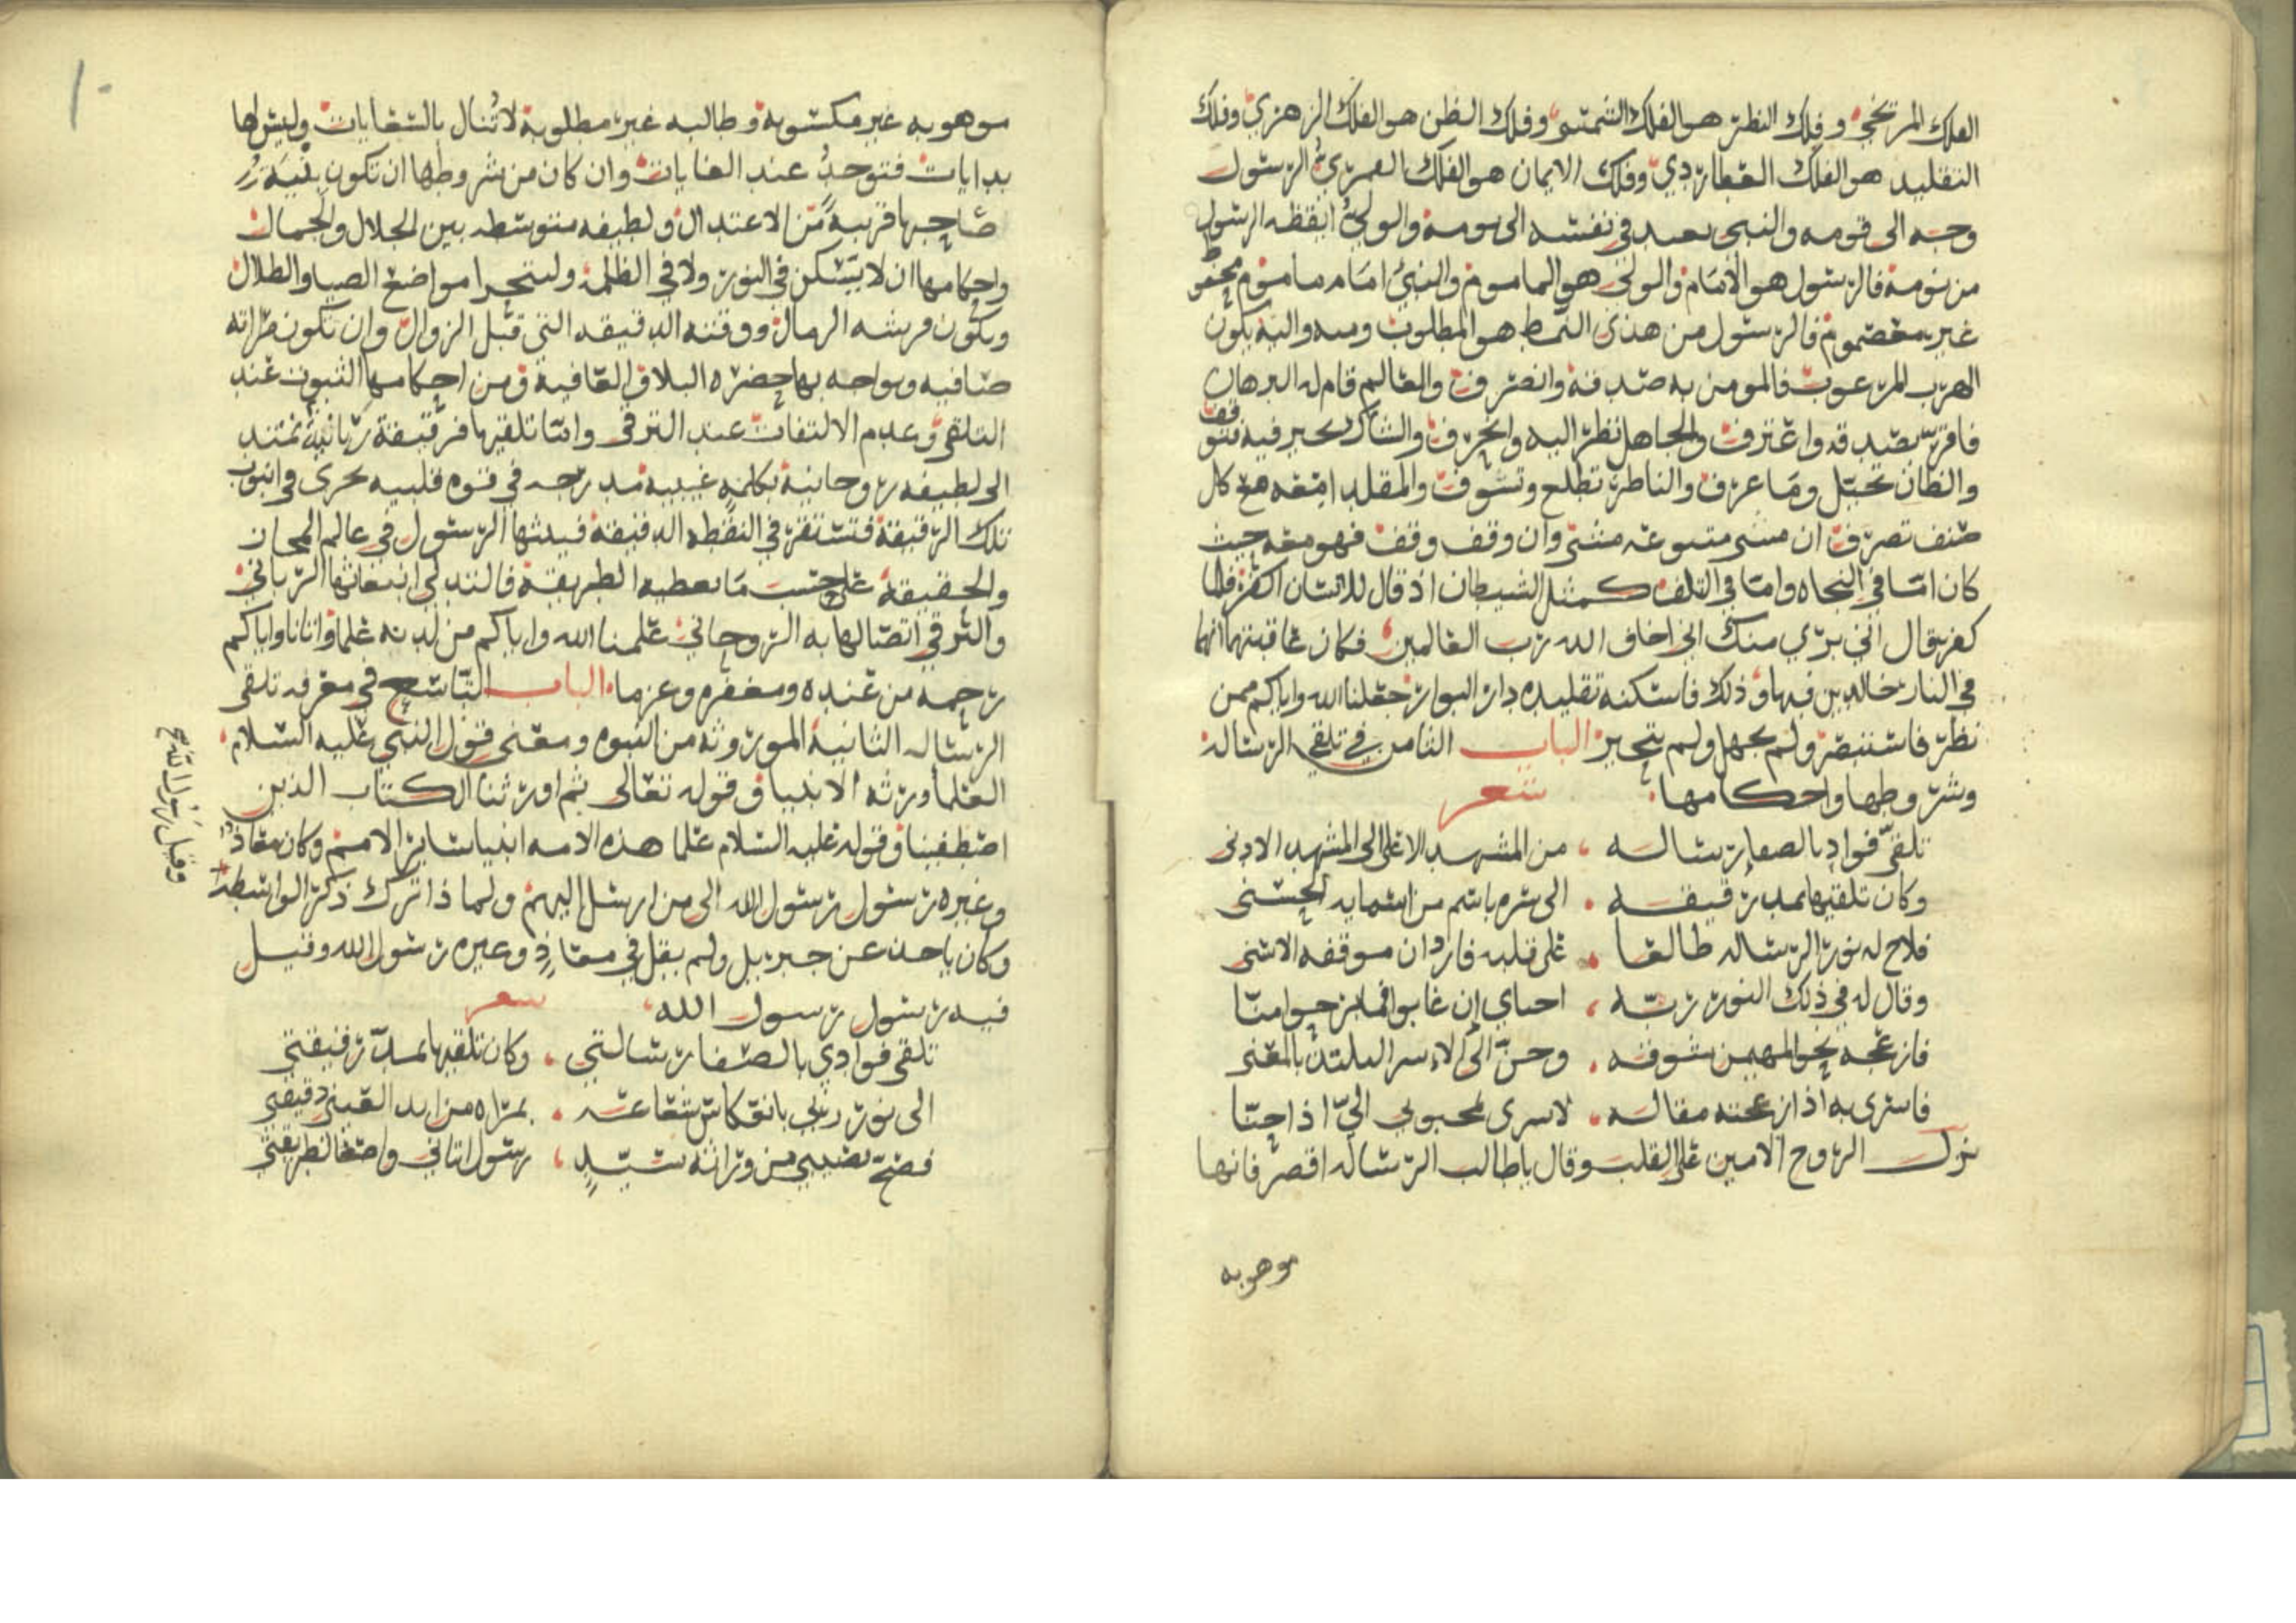 الفلك المريخي وفلك النظر هو الفلك الشمسي وفلك الظن هو الفلك الزهري وفلك
التقليد هو الفلك العطاردي وفلك الايمان هو الفلك القمري الرسول
وجه الى قومه والنبي تعبد في نفسه الى يومه والولي ايقظه الرسول
من نومه فالرسول هو الامام والولي هو الماموم والنبي امام ماموم محفوظ
غير معصوم فالرسول من هذى النمط هو المطلوب ومنه واليه يكون
الهرب المرعوب فالمومن به صدقه وانصرف والعالم قام له البرهان
فاقر بصدقه واعترف والجاهل نظر اليه وانحرف والشاك تحير فيه فتوقف
والظان تخيل وما عرف والناظر تطلع وتشوف والمقلد امعه مع كل
صنف تصرف ان مشى متبوعه مشى وان وقف وقف فهو معه حيث
كان اما في النجاه واما في التلف كمثل الشيطان اذ قال للانسان اكفر فلما
كفر قال اني بري منك اني اخاف الله رب العالمين فكان عاقبتهما انهما
في النار خالدين فيها وذلك فاسكنه تقليده دار البوار جعلنا الله واياكم ممن
نظر فاستبصر ولم يجهل ولم يتحير الباب الثامن في تلقي الرسالة
وشروطها واحكامها شعر
تلقى فواد بالصفا رساله من المشهد الاعلى الى المشهد الادنى
وكان تلقيها بمد رقيقه الى سره باسم من اسمايه الحسنى
فلاح له نور الرساله طالعا على قلبه فازدان موقفه الاسنى
وقال له في ذلك النور ربه احباي ان غابوا فما برحوا منا
فازعجه نحو المهيمن شوقه وحن الى الاسر الملتذ بالمغنى
فاسرى به اذ ازعجته مقاله لاسرى لمحبوبي الي اذا حنا
نزل الروح الامين على القلب وقال يا طالب الرساله اقصر فانها
موهوبه
موهوبه غير مكسوبة وطالبه غير مطلوبة لا تنال بالسعايات وليس لها
بدايات فتوجد عند الغايات وان كان من شروطها ان تكون بنية
صاحبها قريبة من الاعتدال ولطيفه متوسطه بين الجلال والجمال
واحكامها ان لا يتسكن في النور ولا في الظلمة وليتحرا مواضع الضيا والظلال
ويكون فرشه الرمال ووقته الدقيقه التي قبل الزوال وان تكون مراته
صافيه ويواجه بها حضره البلا والعافية ومن احكامها الثبوت عند
التلقي وعدم الالتفات عند الترقى واما تلقيها فرقيقة ربانية تمتد
الى لطيفه روحانية بكلمة غيبيه مدرجه في قوه قلبيه تجرى في انبوب
تلك الرقيقة فتستقر في النقطه الدقيقة فيبثها الرسول في عالم المجاز
والحقيقة على حسب ما تعطيه الطريقة فالتدلي انبعاثها الرباني
والترقي اتصالها به الروحاني علمنا الله واياكم من لدنه علما واتانا واياكم
رحمة من عنده ومغفره وعزما الباب التاسع في معرفه تلقى
الرساله الثانية الموروثه من النبوه ومعنى قول النبي عليه السلام
العلما ورثه الانبيا وقوله تعالى ثم اورثنا الكتاب الذين
اصطفينا وقوله عليه السلام علما هذه الامه انبيا ساير الامم وكان معاذ
وغيره رسول رسول الله الى من ارسل اليهم ولماذا ترك ذكر الواسطه
وكان ياخذ عن جبريل ولم يقل في معاذ وغيره رسول الله وقيل
فيه رسول رسول الله شعر
تلقى فوادي بالصفا رسالتي وكان تلقيها بمد رقيقتي
الى نور ربي بانعكاس شعاعه بمراه من ابد الغيب دقيقتي
فصح نصيبي من وراثه سيد رسول اتاني واصغا لطريقتي
وقيل رسول الله صح